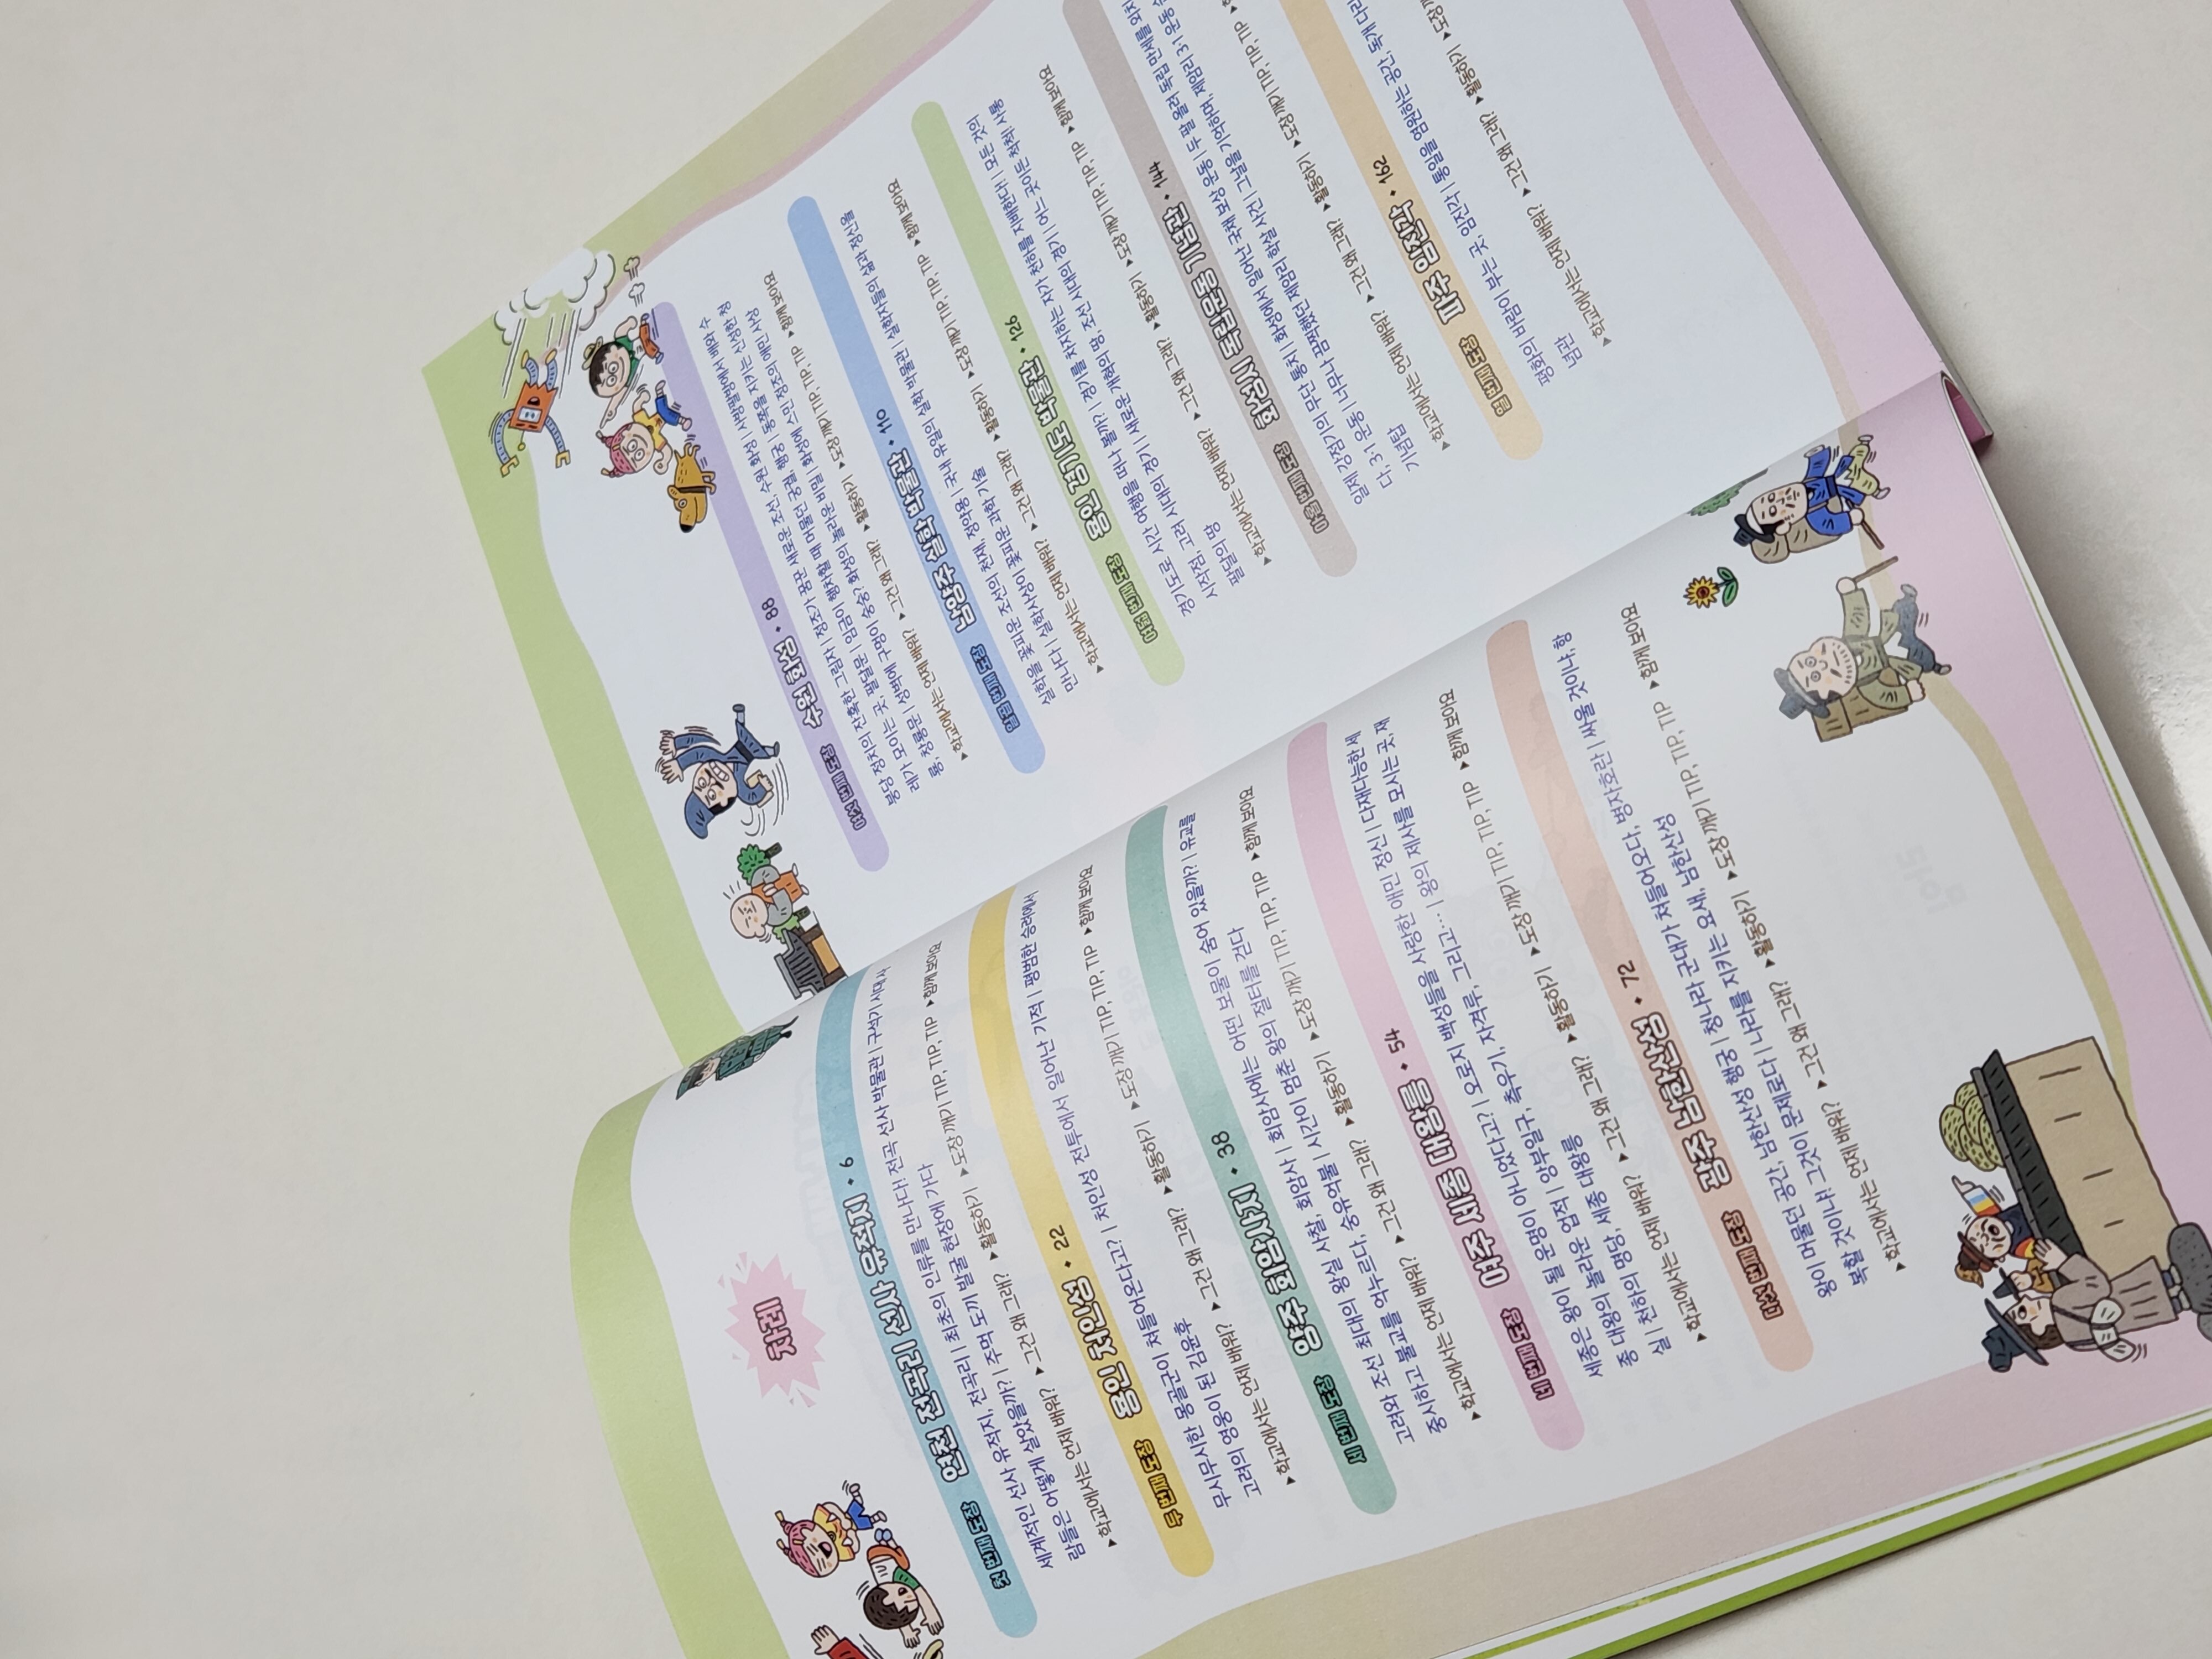 차례
첫 번째 도장 연천 전곡리 선사 유적지 • 6
세계적인 선사 유적지, 전곡리 | 최초의 인류를 만나다! 전곡 선사 박물관 | 구석기 시대 사
람들은 어떻게 살았을까? | 주먹 도끼 발굴 현장에 가다
▶학교에서는 언제 배워? ▶그건 왜 그래? ▶활동하기 ▶도장 깨기 TIP, TIP, TIP ▶함께 보아요
두 번째 도장 용인 처인성 • 22
무시무시한 몽골군이 쳐들어온다고? | 처인성 전투에서 일어난 기적 | 평범한 승려에서
고려의 영웅이 된 김윤후
▶학교에서는 언제 배워? ▶그건 왜 그래? ▶활동하기 ▶도장 깨기 TIP, TIP, TIP ▶함께 보아요
세 번째 도장 양주 회암사지 • 38
고려와 조선 최대의 왕실 사찰, 회암사 | 회암사에는 어떤 보물이 숨어 있을까? | 유교를
중시하고 불교를 억누르다, 숭유억불 | 시간이 멈춘 왕의 절터를 걷다
▶학교에서는 언제 배워? ▶그건 왜 그래? ▶활동하기 ▶도장 깨기 TIP, TIP, TIP ▶함께 보아요
네 번째 도장 여주 세종 대왕릉 • 54
세종은 왕이 될 운명이 아니었다고? | 오로지 백성들을 사랑한 애민 정신 | 다재다능한 세
종 대왕의 놀라운 업적 | 앙부일구, 측우기, 자격루, 그리고… | 왕의 제사를 모시는 곳, 재
실 | 천하의 명당, 세종 대왕릉
▶학교에서는 언제 배워? ▶그건 왜 그래? ▶활동하기 ▶도장 깨기 TIP, TIP, TIP ▶함께 보아요
다섯 번째 도장 광주 남한산성 • 72
왕이 머물던 공간, 남한산성 행궁 | 청나라 군대가 쳐들어오다, 병자호란 | 싸울 것이냐, 항
복할 것이냐! 그것이 문제로다 | 나라를 지키는 요새, 남한산성
▶학교에서는 언제 배워? ▶그건 왜 그래? ▶활동하기 ▶도장 깨기 TIP, TIP, TIP ▶함께 보아요
여섯 번째 도장 수원 화성 • 88
붕당 정치의 진혹한 그림자 | 정조가 꿈꾼 새로운 조선, 수원 화성 | 사방팔방에서 배와 수
레가 모이는 곳, 팔달문 | 임금이 행차할 때 머물던 궁궐, 행궁 | 동쪽을 지키는 신성한 청
룡, 창룡문 | 성벽에 구멍이 숭숭? 화성의 놀라운 비밀 | 화성에 스민 정조의 애민 사상
▶학교에서는 언제 배워? ▶그건 왜 그래? ▶활동하기 ▶도장 깨기 TIP, TIP, TIP ▶함께 보아요
일곱 번째 도장 남양주 실학 박물관 • 110
실학을 꽃피운 조선의 천재, 정약용 | 국내 유일의 실학 박물관 | 실학자들의 삶과 정신을
만나다 | 실학 사상이 꽃피운 과학 기술
▶학교에서는 언제 배워? ▶그건 왜 그래? ▶활동하기 ▶도장 깨기 TIP, TIP, TIP ▶함께 보아요
여덟 번째 도장 용인 경기도 박물관 • 126
경기도로 시간 여행을 떠나 볼까? | 경기를 차지하는 자가 천하를 지배한다! | 모든 것의
시작점, 고려 시대의 경기 | 새로운 개혁의 땅, 조선 시대의 경기 | 어느 곳이든 척척! 사통
팔달의 땅
▶학교에서는 언제 배워? ▶그건 왜 그래? ▶활동하기 ▶도장 깨기 TIP, TIP, TIP ▶함께 보아요
아홉 번째 도장 화성시 독립운동 기념관 • 144
일제 강점기의 무단 통치 | 화성에서 일어난 국채 보상 운동 | 두 팔 올려 독립 만세를 외치
다, 3·1 운동 | 너무나 끔찍했던 제암리 학살 사건 | 그날을 기억하며, 제암리 3·1 운동 순
기념탑
▶학교에서는 언제 배워? ▶그건 왜 그래? ▶활동하기 ▶도장 깨기 TIP, TIP, TIP
열 번째 도장 파주 임진각 • 162
평화의 바람이 부는 곳, 임진각 | 통일을 염원하는 공간, 독개다리
남관
▶학교에서는 언제 배워? ▶그건 왜 그래? ▶활동하기